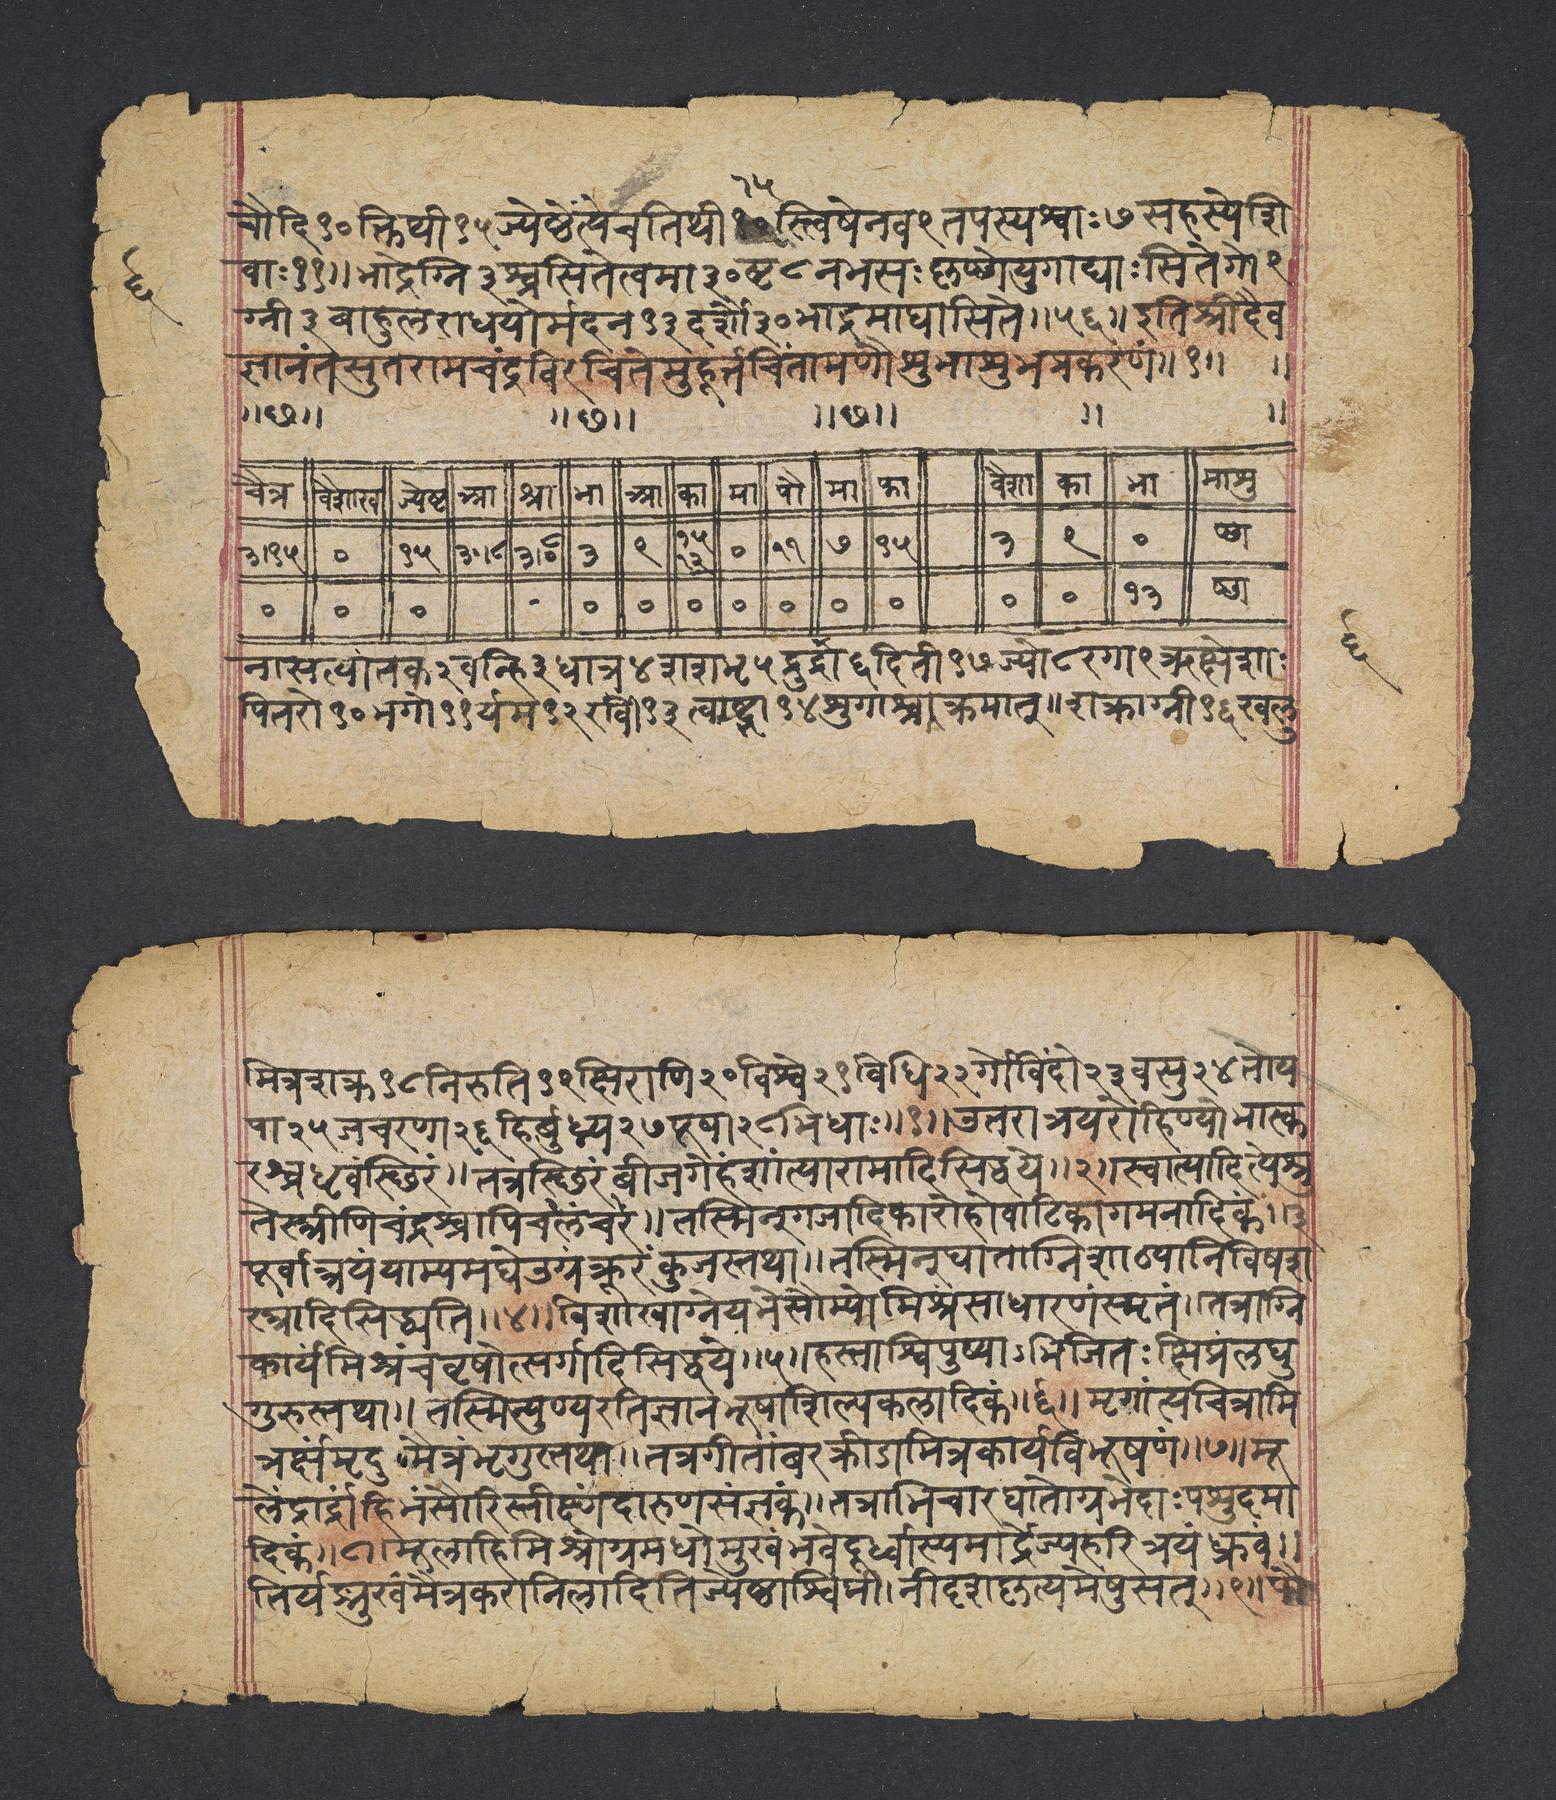 १५
चौदि१०क्तिथी१५ज्येष्ठेंत्येचतिथी१०स्त्विषेनव९तपस्यश्वाः७सहस्येशि
वाः११॥भाद्रेग्नि३श्चसितेत्वमा३०ष्ट८नभसःकृष्णेयुगाद्याःसितेगो९
ग्नी३बाहुलराधयोर्मदन१३दर्शौ३०भाद्रमाघासिते॥५६॥इतिश्रीदैव
ज्ञानंतसुतरामचंद्रविरचितेमुहूर्तचिंतामणौशुभाशुभप्रकरणं॥१॥ ॥
॥छ॥ ॥छ॥ ॥छ॥ ॥ ॥
चैत्र वैशाख ज्येष्ट आ श्रा भा आ का मा पौ मा फा वैशा का भा मासु
३।१५ ० १५ ३०।८ ३ ९ १५ १२ ० ११ ७ १५ ३ ९ ०
० ० ० ० ० ० ० ० ० ० ० ० १३
नासत्यांतक२वन्हि३धातृ४शशभृ५द्रुर्द्रा६दिती१७ज्यो८रगा९ऋक्षेशाः
पितरो१०भगो११र्यम१२रवी१३त्वाष्ट्रा१४सुगाश्चाक्रमात्॥शक्राग्नी१६खलु
६
६
मित्रशक्र१८निरुति१९क्षिराणि२०विश्वे२१विधि२२र्गोविंदो२३वसु२४तोय
पा२५जचरणा२६हिर्बुध्न्य२७पूषा२८भिधाः॥१॥उतरात्रयरोहिण्योभास्क
रश्चध्रुवंस्छिरं॥तत्रस्छिरंबीजगेहंशांत्यारामादिसिद्धये॥२॥स्वात्यादित्येश्रु
तेस्त्रीणिचंद्रश्चापिचलंचरं॥तस्मिन्गजादिकारोहोवाटिकागमनादिकं॥३
पूर्वात्रयंयाम्यमघेउग्रंक्रूरंकुजस्तथा॥तस्मिन्घाताग्निशाठ्यानिविषश
स्त्रादिसिद्ध्यति॥४॥विशाखाग्नेयभेसौम्योमिश्रंसाधारणंस्मृतं॥तत्राग्नि
कार्यंमिश्रंचवृषोत्सर्गादिसिद्धये॥५॥हस्ताश्विपुष्याऽभिजितःक्षिप्रंलघु
गुरुस्तथा॥तस्मित्पुण्यरतिज्ञानंभूषाशिल्पकलादिकं॥६॥मृगांत्यचित्रामि
त्रर्क्षंमृदुमैत्रंभृगुस्तथा॥तत्रगीतांबरक्रीडामित्रकार्यविभूषणं॥७॥मू
लेंद्रार्द्राहिभंसौरिस्तीक्ष्णंदारुणसंज्ञकं॥तत्राभिचारघातोग्रभेदाःपशुदमा
दिकं॥८॥मूलाहिमिश्रोग्रमधोमुखंभवेदूर्ध्वास्यमार्द्रेज्यहरित्रयंध्रुवं॥
तिर्यङ्मुखंमैत्रकरानिलादितिज्येष्ठाश्विभौ।नीदृशकृत्यमेषुसत्॥९॥पौ